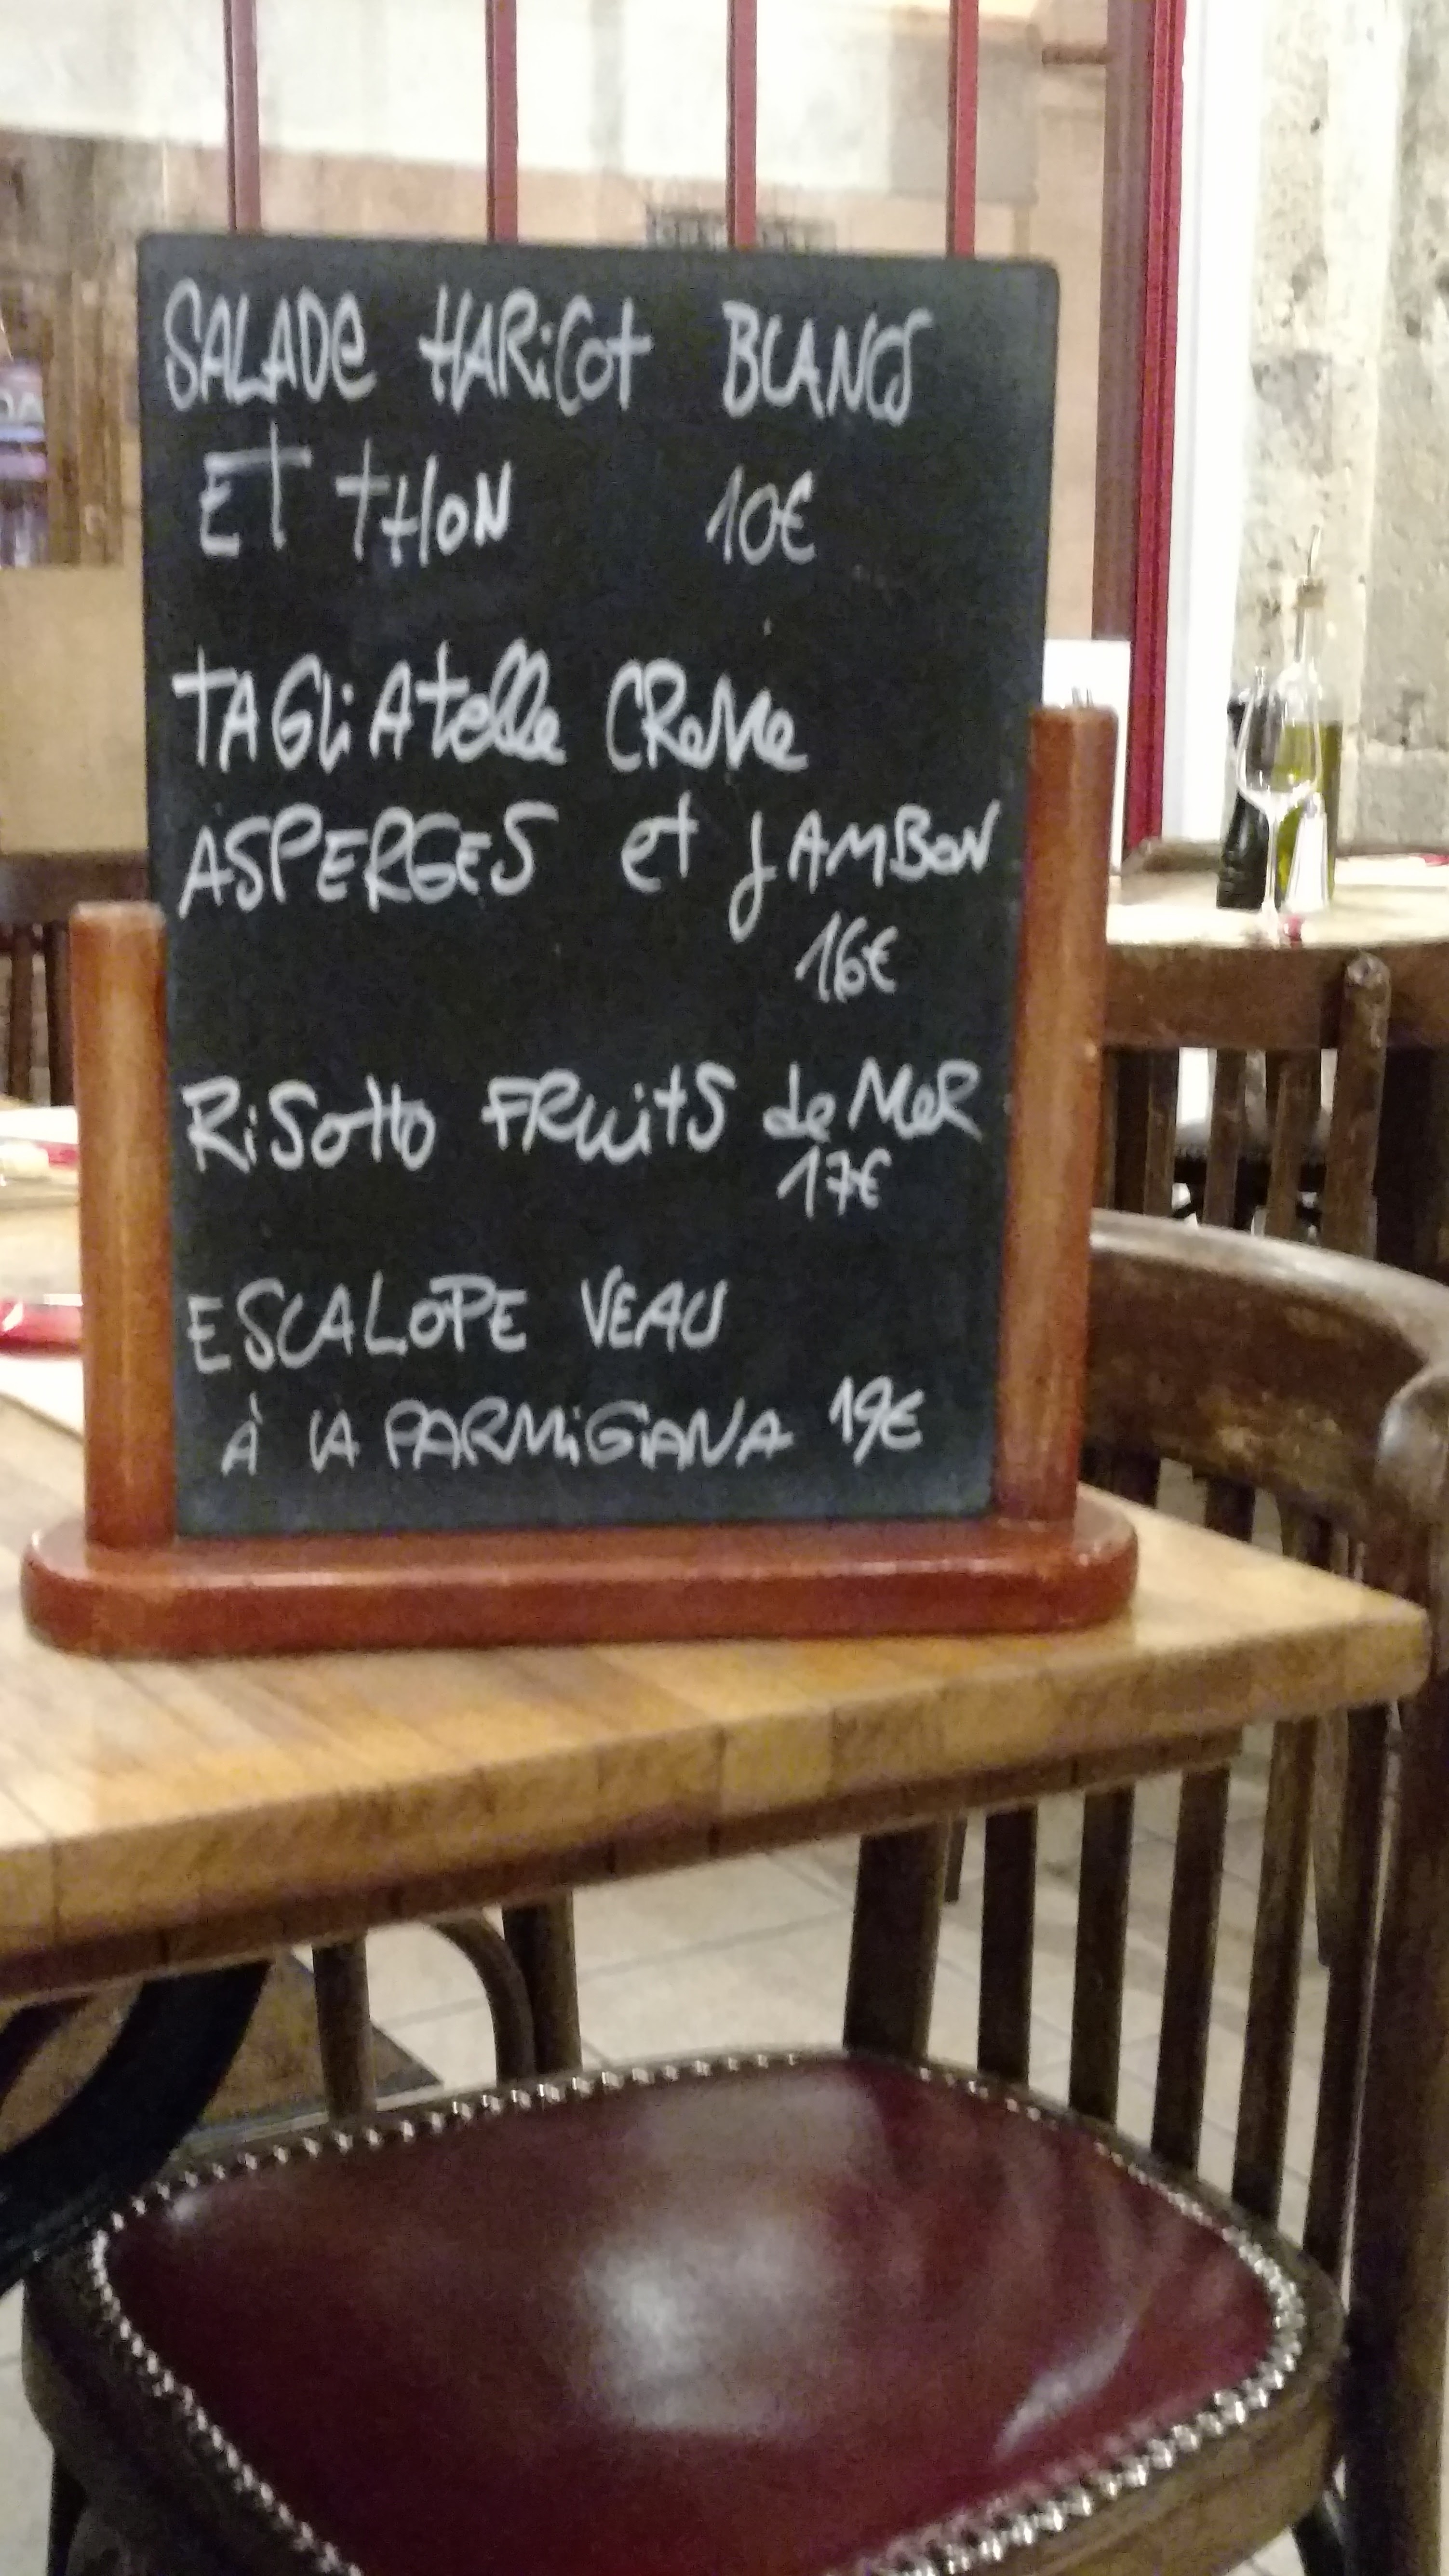 SALADE HARICOT BLANCS
ET THON 10€
TAGLIATELLE CREME
ASPERGES et JAMBON
16€
RISOTTO FRUITS de MER
17€
ESCALOPE VEAU
À LA PARMIGIANA 19€